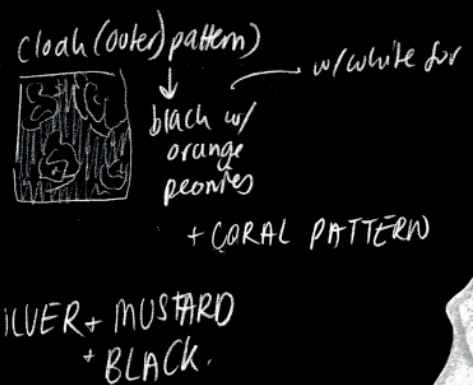 cloak (outer) pattern)
w/ white for
black w/
orange
peonies
+ CORAL PATTERN
ILVER + MUSTARD
+ BLACK.